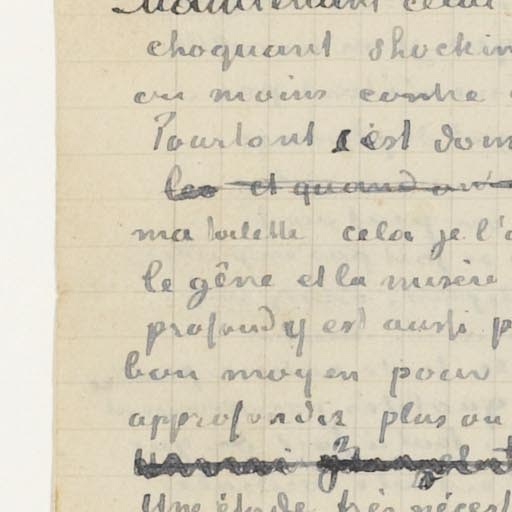 Maintenant celui
choquant shockin
ou moins contre
Pourtant c'est dom
les et quand
ma toilette cela je l'a
le gêne et la misère
profond y est aussi p
bon moyen pour
approfondir plus ou
Une étude très nécess